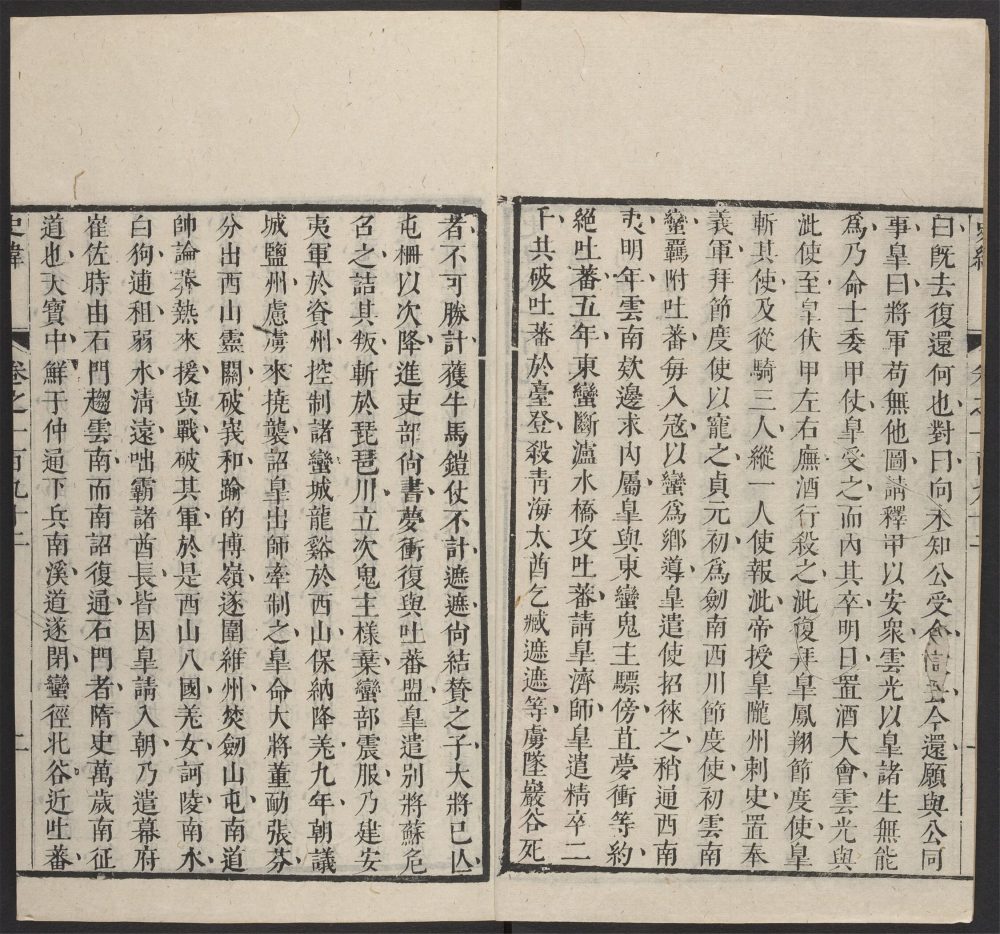 曰旣去復還何也對曰向未知公受命故去今還願與公同
事臯曰將軍苟無他圖請釋甲以安衆雲光以臯諸生無能
爲乃命士委甲仗臯受之而內其卒明日置酒大會雲光與
泚使至臯伏甲左右廡酒行殺之泚復拜臯鳳翔節度使臯
斬其使及從騎三人縱一人使報泚帝授臯隴州刺史置奉
義軍拜節度使以寵之貞元初爲劒南西川節度使初雲南
蠻羈附吐蕃每入宼以蠻爲鄕導臯遣使招徠之稍通西南
夷明年雲南欵邊求內屬臯與東蠻鬼主驃傍苴夢衝等約
絕吐蕃五年東蠻斷瀘水橋攻吐蕃請臯濟師臯遣精卒二
千共破吐蕃於臺登殺靑海大酋乞臧遮遮等虜墜巖谷死
者不可勝計獲牛馬鎧仗不計遮遮尙結贊之子大將已亾
屯柵以次降進吏部尙書夢衝復與吐蕃盟臯遣別將蘇危
召之詰其叛斬於琵琶川立次鬼主樣棄蠻部震服乃建安
夷軍於資州控制諸蠻城龍谿於西山保納降羌九年朝議
城鹽州慮虜來撓襲詔臯出師牽制之臯命大將董勔張芬
分出西山靈關破峩和踰的博嶺遂圍維州焚劒山屯南道
帥論莽熱來援與戰破其軍於是西山八國羌女訶陵南水
白狗逋租弱水淸遠咄霸諸酋長皆因臯請入朝乃遣幕府
崔佐時由石門趨雲南而南詔復通石門者隋史萬歲南征
道也天寶中鮮于仲通下兵南溪道遂閉蠻徑北谷近吐蕃
史緯
卷之一百九十二
二